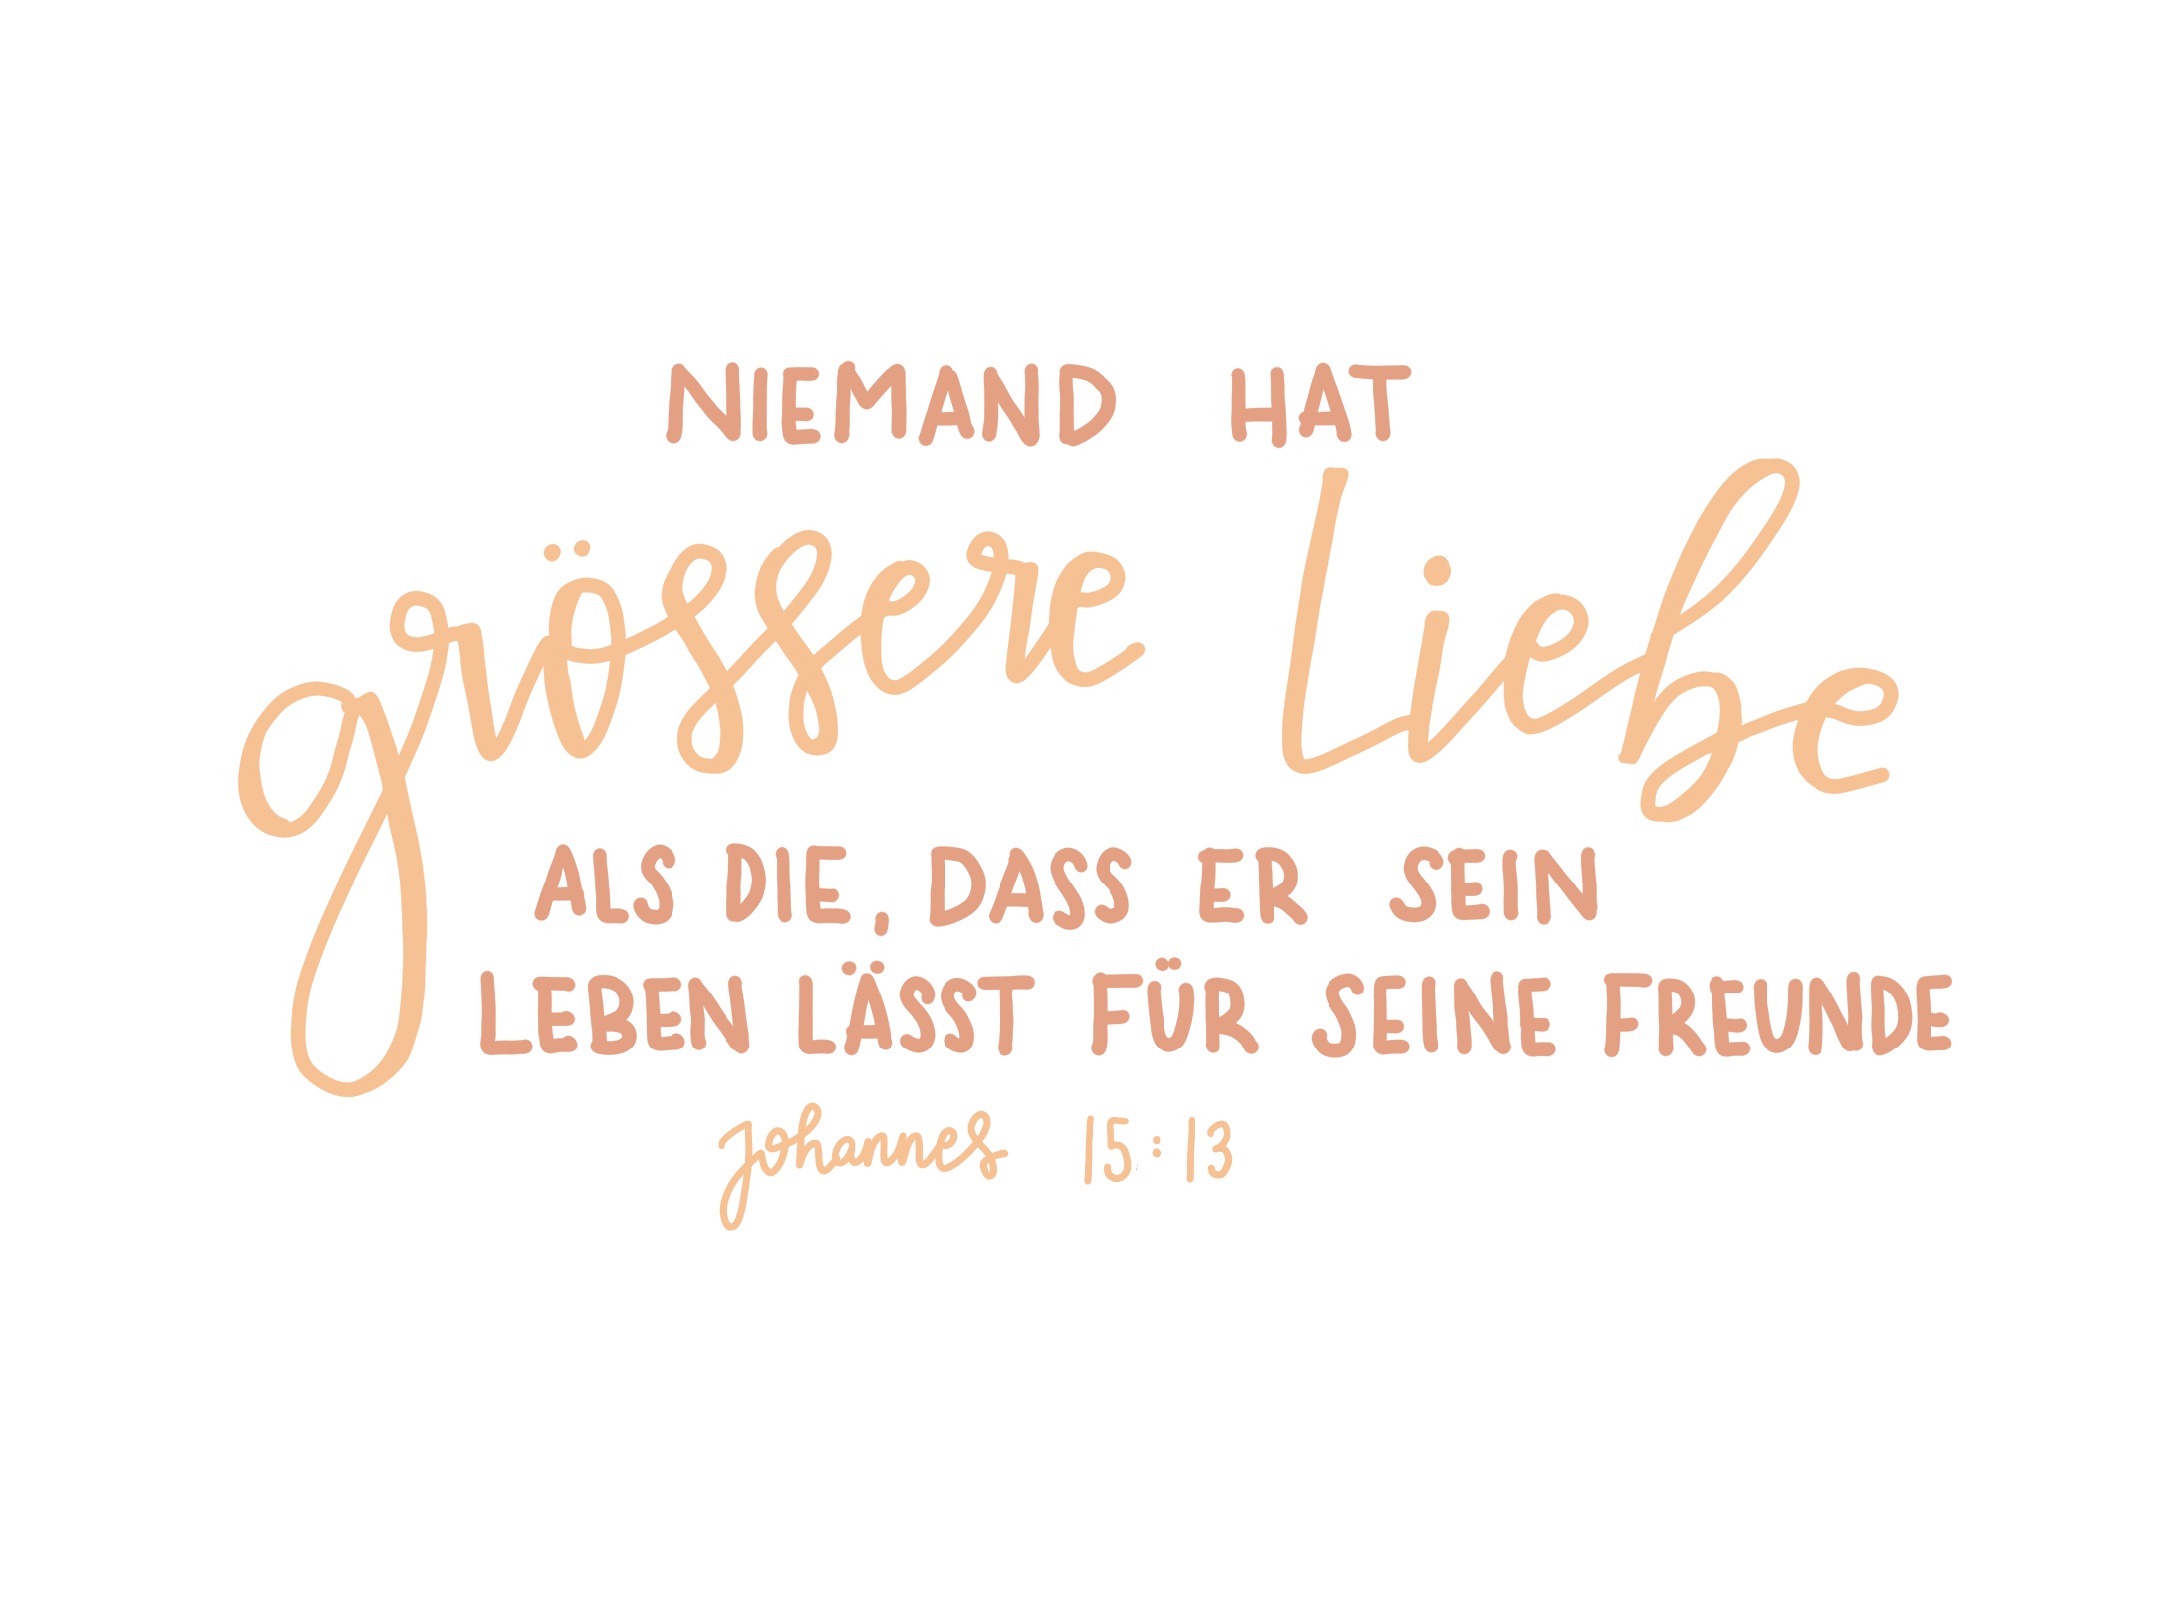 NIEMAND HAT
grössere Liebe
ALS DIE, DASS ER SEIN
LEBEN LÄSST FÜR SEINE FREUNDE
Johannes 15:13